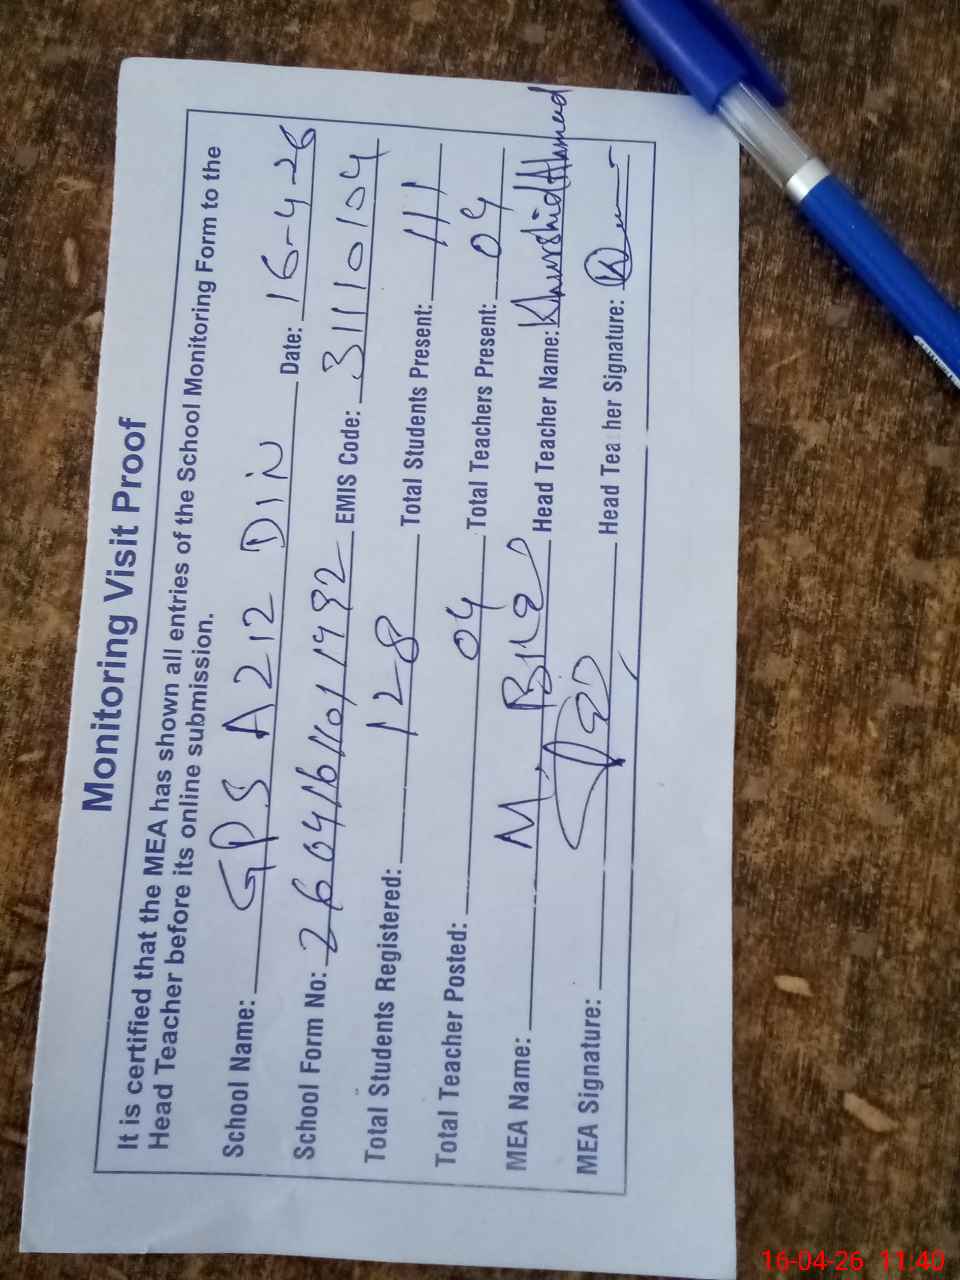 Monitoring Visit Proof
It is certified that the MEA has shown all entries of the School Monitoring Form to the
Head Teacher before its online submission.
School Name: GPS A212 DIN Date: 16-4-26
School Form No: EMIS Code: 31110104
Total Students Registered: 128 Total Students Present: 111
Total Teacher Posted: 04 Total Teachers Present: 04
MEA Name: M. Head Teacher Name: Khurshid Ahmad
MEA Signature: Head Teacher Signature:
16-04-26 11:40